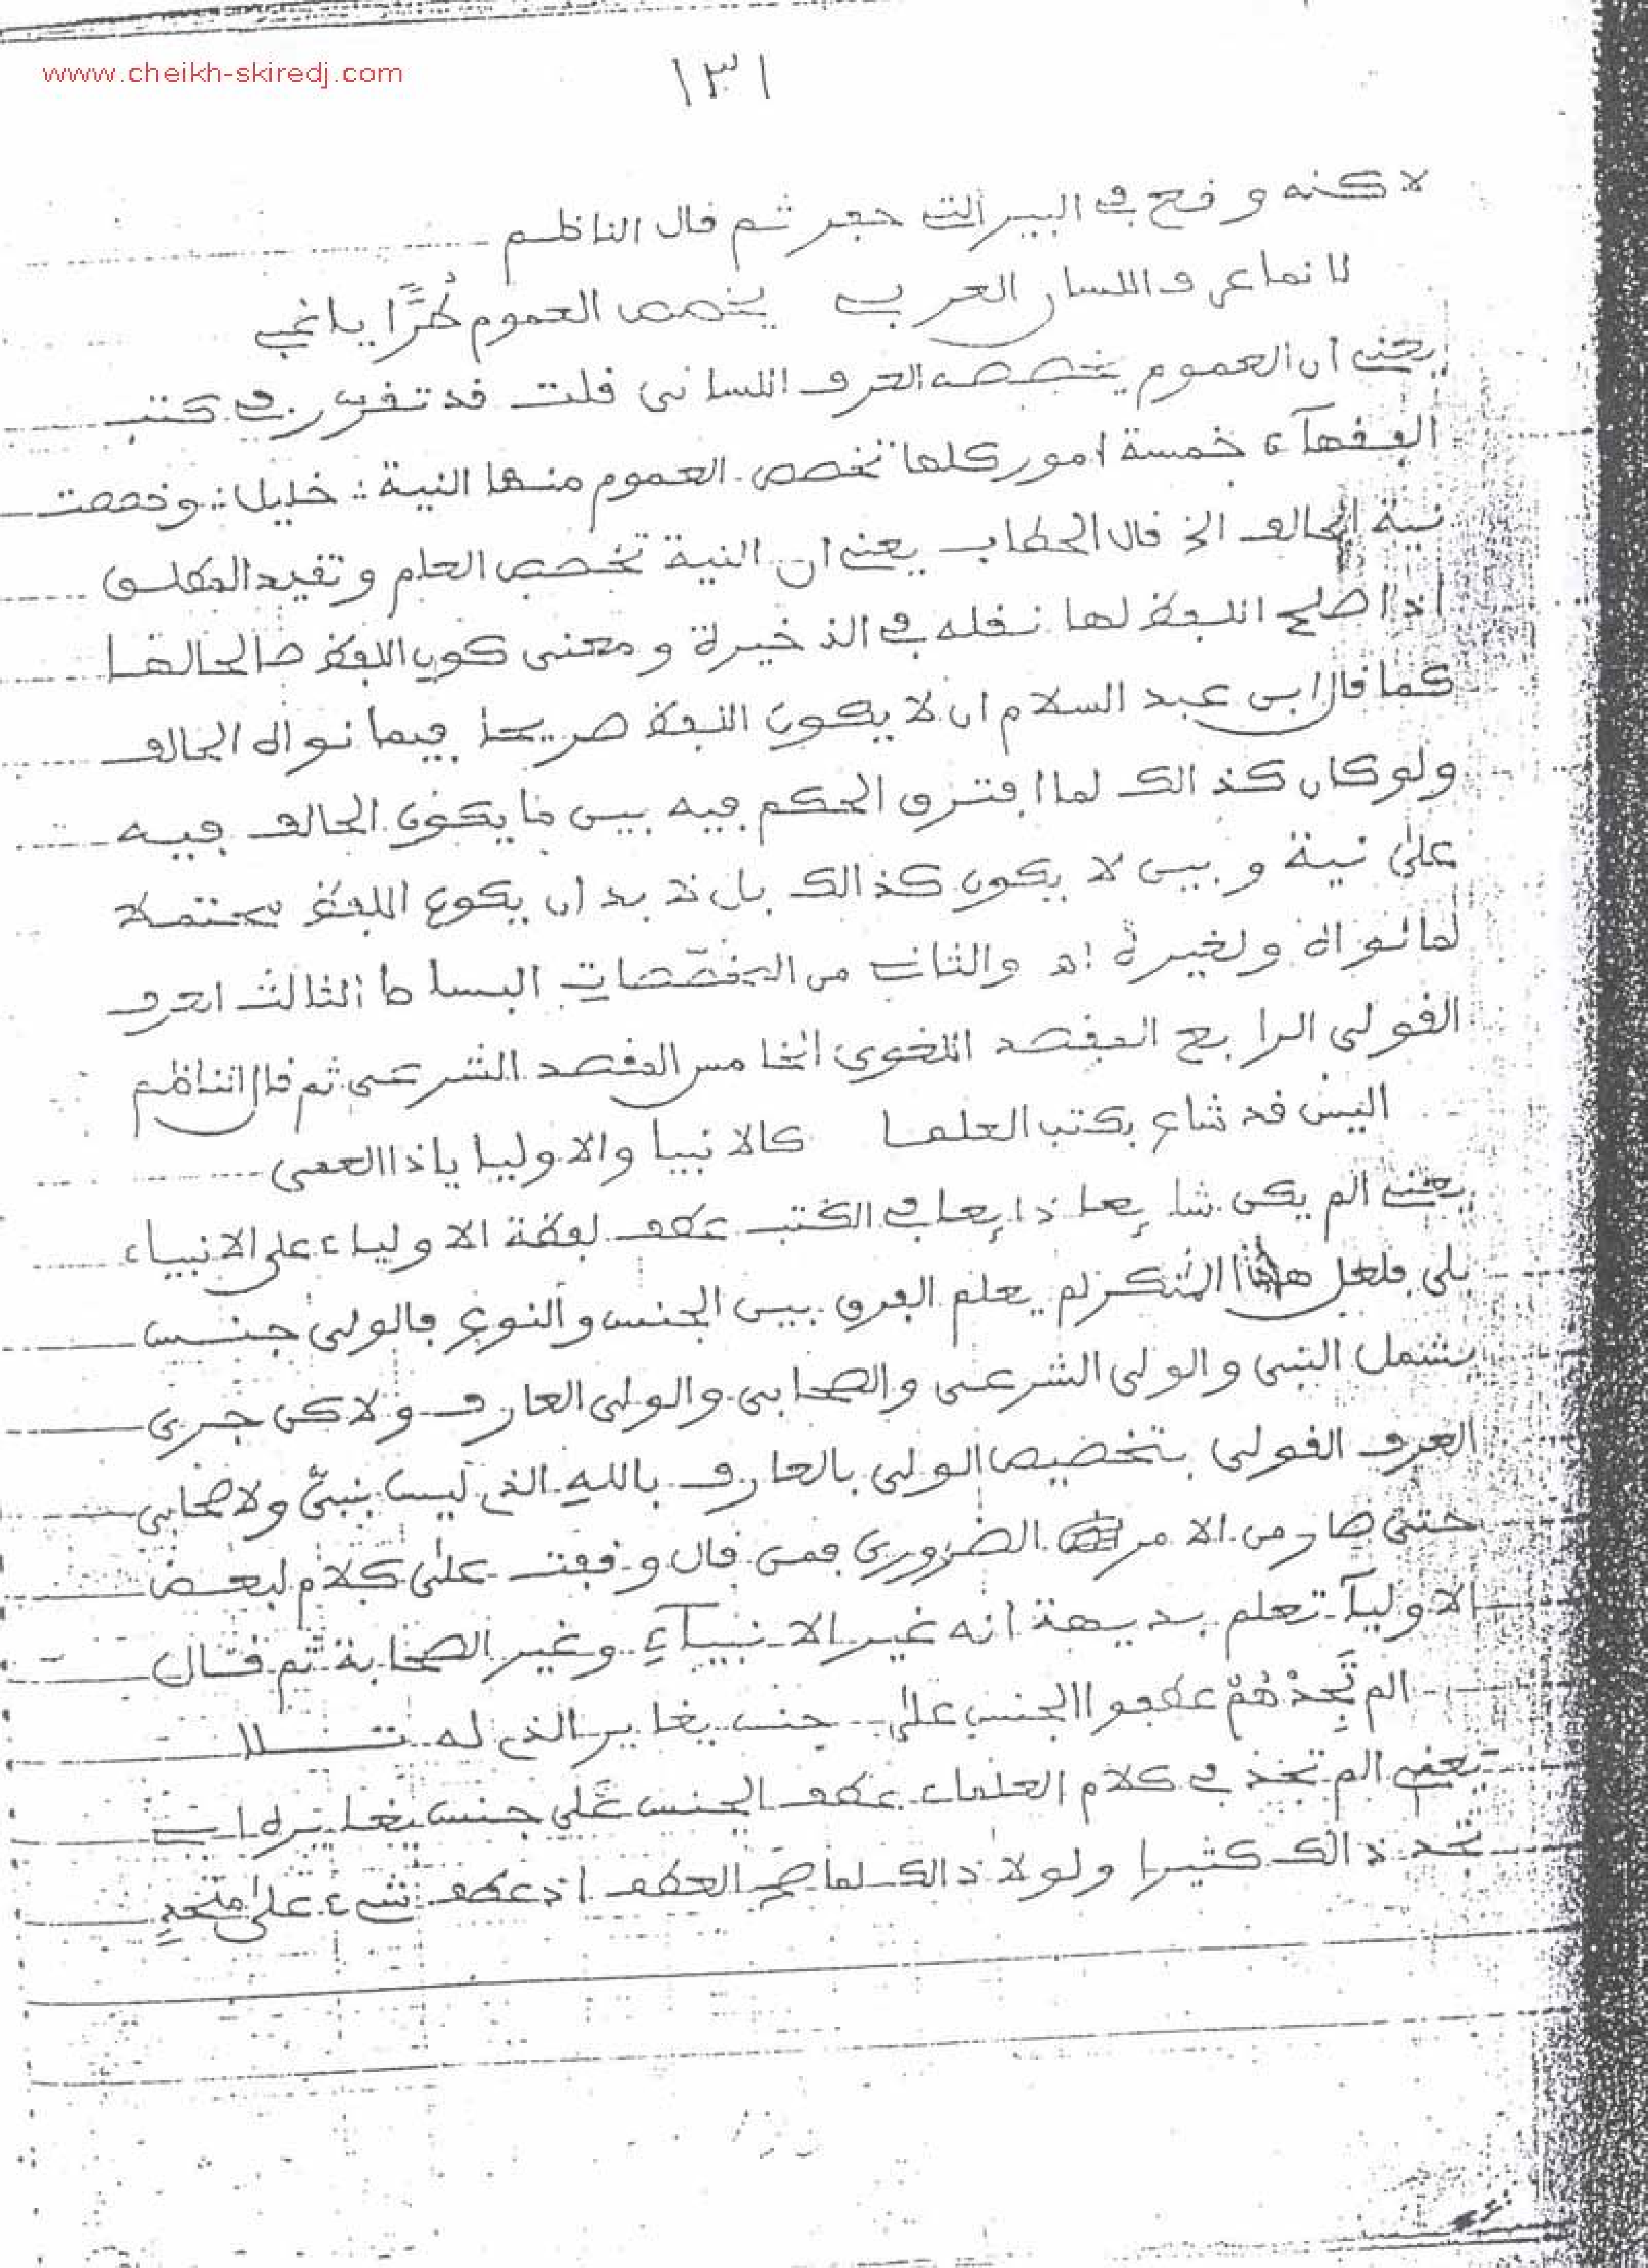 www.cheikh-skiredj.com
١٣١
لاكنه وقع في البير التي حفر ثم قال الناظم
لانما عرف اللسان العربي يخصص العموم طُرًّا يا غبي
يعني ان العموم يخصصه العرف اللساني قلت قد تقرّر في كتب
الفقهآء خمسة امور كلها تخصص العموم منها النية :: خليل :: وخصصت
نية الحالف الخ قال الحطاب يعني ان النية تخصص العام وتقيد المطلق
اذا صلح اللفظ لها نقله في الذخيرة ومعنى كون اللفظ صالحا لها
كما قال ابن عبد السلام ان لا يكون اللفظ صريحا فيما نواه الحالف
ولو كان كذالك لما افترق الحكم فيه بين ما يكون الحالف فيه
على نية وبين لا يكون كذالك بل لا بد ان يكون اللفظ محتملا
لما نواه ولغيره اه والثاني من المخصّصاتِ البساط الثالث العرف
القولي الرابع المقصد اللغوي الخامس المقصد الشرعي ثم قال الناظم
اليس قد شاع بكتب العلما كالانبيا والاوليا ياذا العمى
يعني الم يكن شايعا ذايعا في الكتب عطف لفظة الاولياء على الانبياء
بلى فلعل هذا المنكر لم يعلم الفرق بين الجنس والنوع فالولي جنس
يشمل النبي والولي الشرعي والصحابي والولي العارف ولاكن جرى
العرف القولي بتخصيص الولي بالعارف باللهِ الذي ليس بنبيّ ولا صحابي
حتى صار من الامر الضروري فمن قال وقفت على كلام لبعض
الاوليآ تعلم بديهة انه غير الانبيآءِ وغير الصحابة ثم قال
الم تَجِدْهُمْ عطفوا الجنس على جنس يغاير الذي له تلا
يعني الم تجد في كلام العلماء عطف الجنس على جنس يغايره اي
تجد ذالك كثيرا ولولا ذالك لما صح العطف اذ عطف شيء على متحدٍ